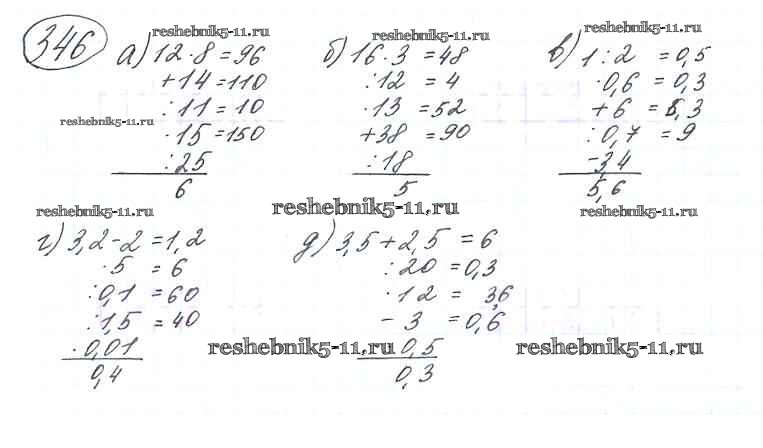 346
reshebnik5-11.ru
а) 12·8=96
+14=110
:11=10
reshebnik5-11.ru
·15=150
:25
6
reshebnik5-11.ru
б) 16·3=48
:12=4
·13=52
+38=90
:18
5
reshebnik5-11.ru
в) 1:2=0,5
·0,6=0,3
+6=6,3
:0,7=9
-3,4
5,6
reshebnik5-11.ru
reshebnik5-11.ru
reshebnik5-11.ru
г) 3,2-2=1,2
·5=6
:0,1=60
:1,5=40
·0,01
0,4
д) 3,5+2,5=6
:20=0,3
·12=3,6
-3=0,6
reshebnik5-11.ru
0,5
0,3
reshebnik5-11.ru